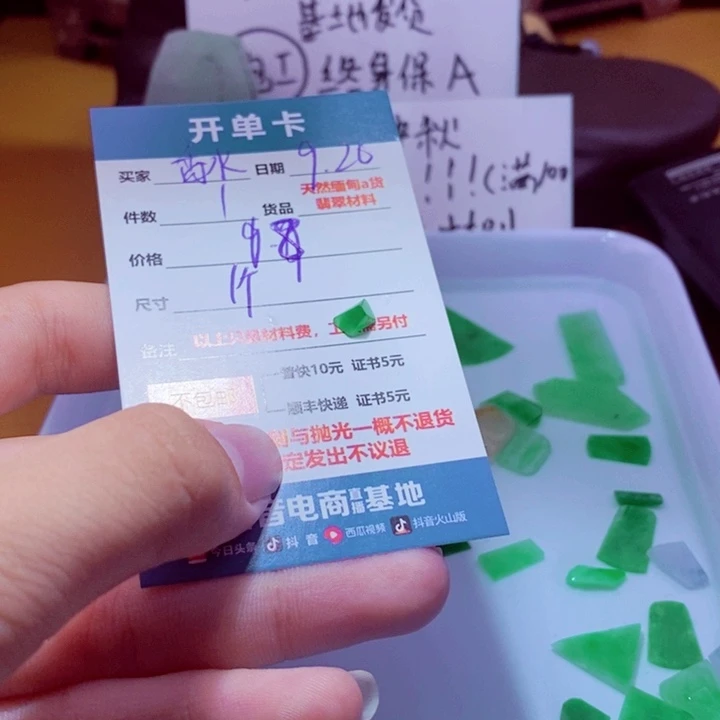 基地发货
终身保A
!!!(满100
开单卡
买家 香水 日期 9.26
件数 1 货品 天然缅甸a货
翡翠材料
价格 98
尺寸 竹
备注 以上只是材料费，工费需另付
普快10元 证书5元
不包邮
顺丰快递 证书5元
与抛光一概不退货
定发出不议退
音电商直播基地
今日头条 抖音 西瓜视频 抖音火山版